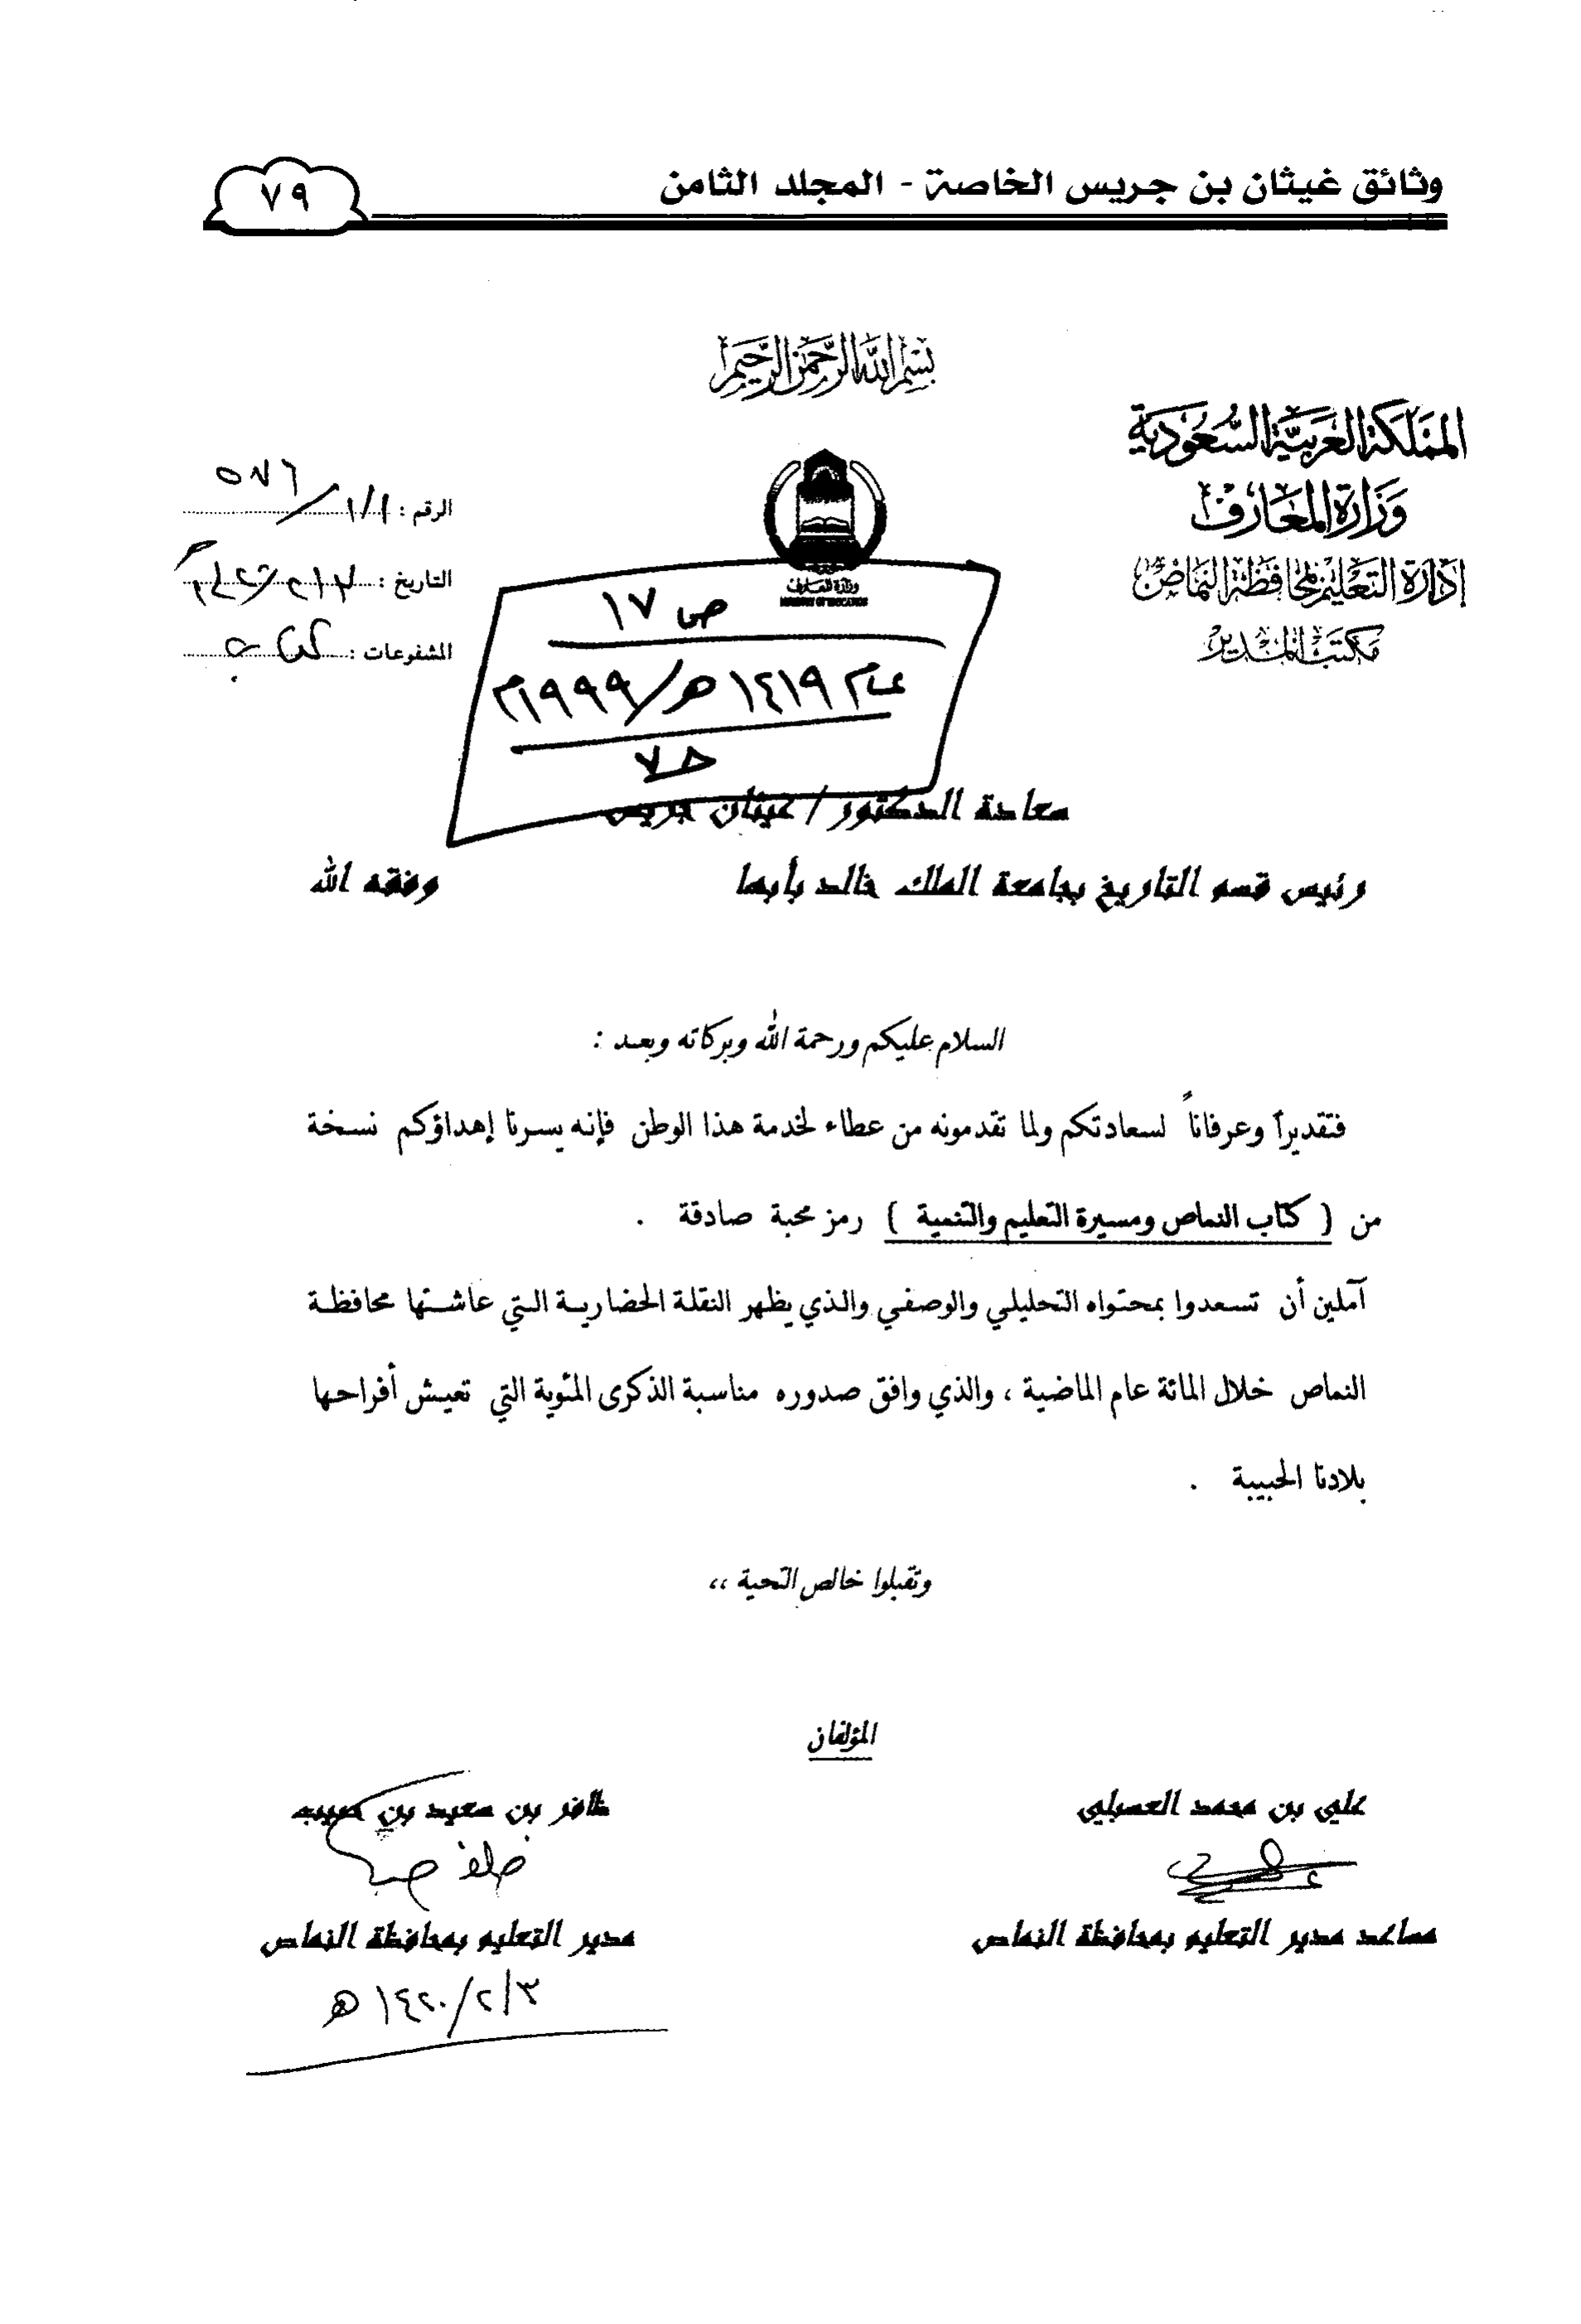 وثائق غيثان بن جريس الخاصة - المجلد الثامن
٧٩
بسم الله الرحمن الرحيم
المملكة العربية السعودية
وزارة المعارف
إدارة التعليم بمحافظة النماص
مكتب المدير
الرقم : ١/١/
التاريخ :
المشفوعات : كتاب
وزارة المعارف
MINISTRY OF EDUCATION
ص ١٧
عام ١٤١٩ هـ/١٩٩٩م
ح٧
سعادة الدكتور / غيثان جريس
رئيس قسم التاريخ بجامعة الملك خالد بأبها وفقه الله
السلام عليكم ورحمة الله وبركاته وبعد :
فتقديراً وعرفاناً لسعادتكم ولما تقدمونه من عطاء لخدمة هذا الوطن فإنه يسرنا إهداؤكم نسخة
من ( كتاب النماص ومسيرة التعليم والتنمية ) رمز محبة صادقة .
آملين أن تسعدوا بمحتواه التحليلي والوصفي والذي يظهر النقلة الحضارية التي عاشتها محافظة
النماص خلال المائة عام الماضية ، والذي وافق صدوره مناسبة الذكرى المئوية التي تعيش أفراحها
بلادنا الحبيبة .
وتقبلوا خالص التحية ،،
المؤلفان
علي بن محمد العسبلي
ظافر بن سعيد بن حبيب
مساعد مدير التعليم بمحافظة النماص
مدير التعليم بمحافظة النماص
٣/٢/١٤٢٠ هـ